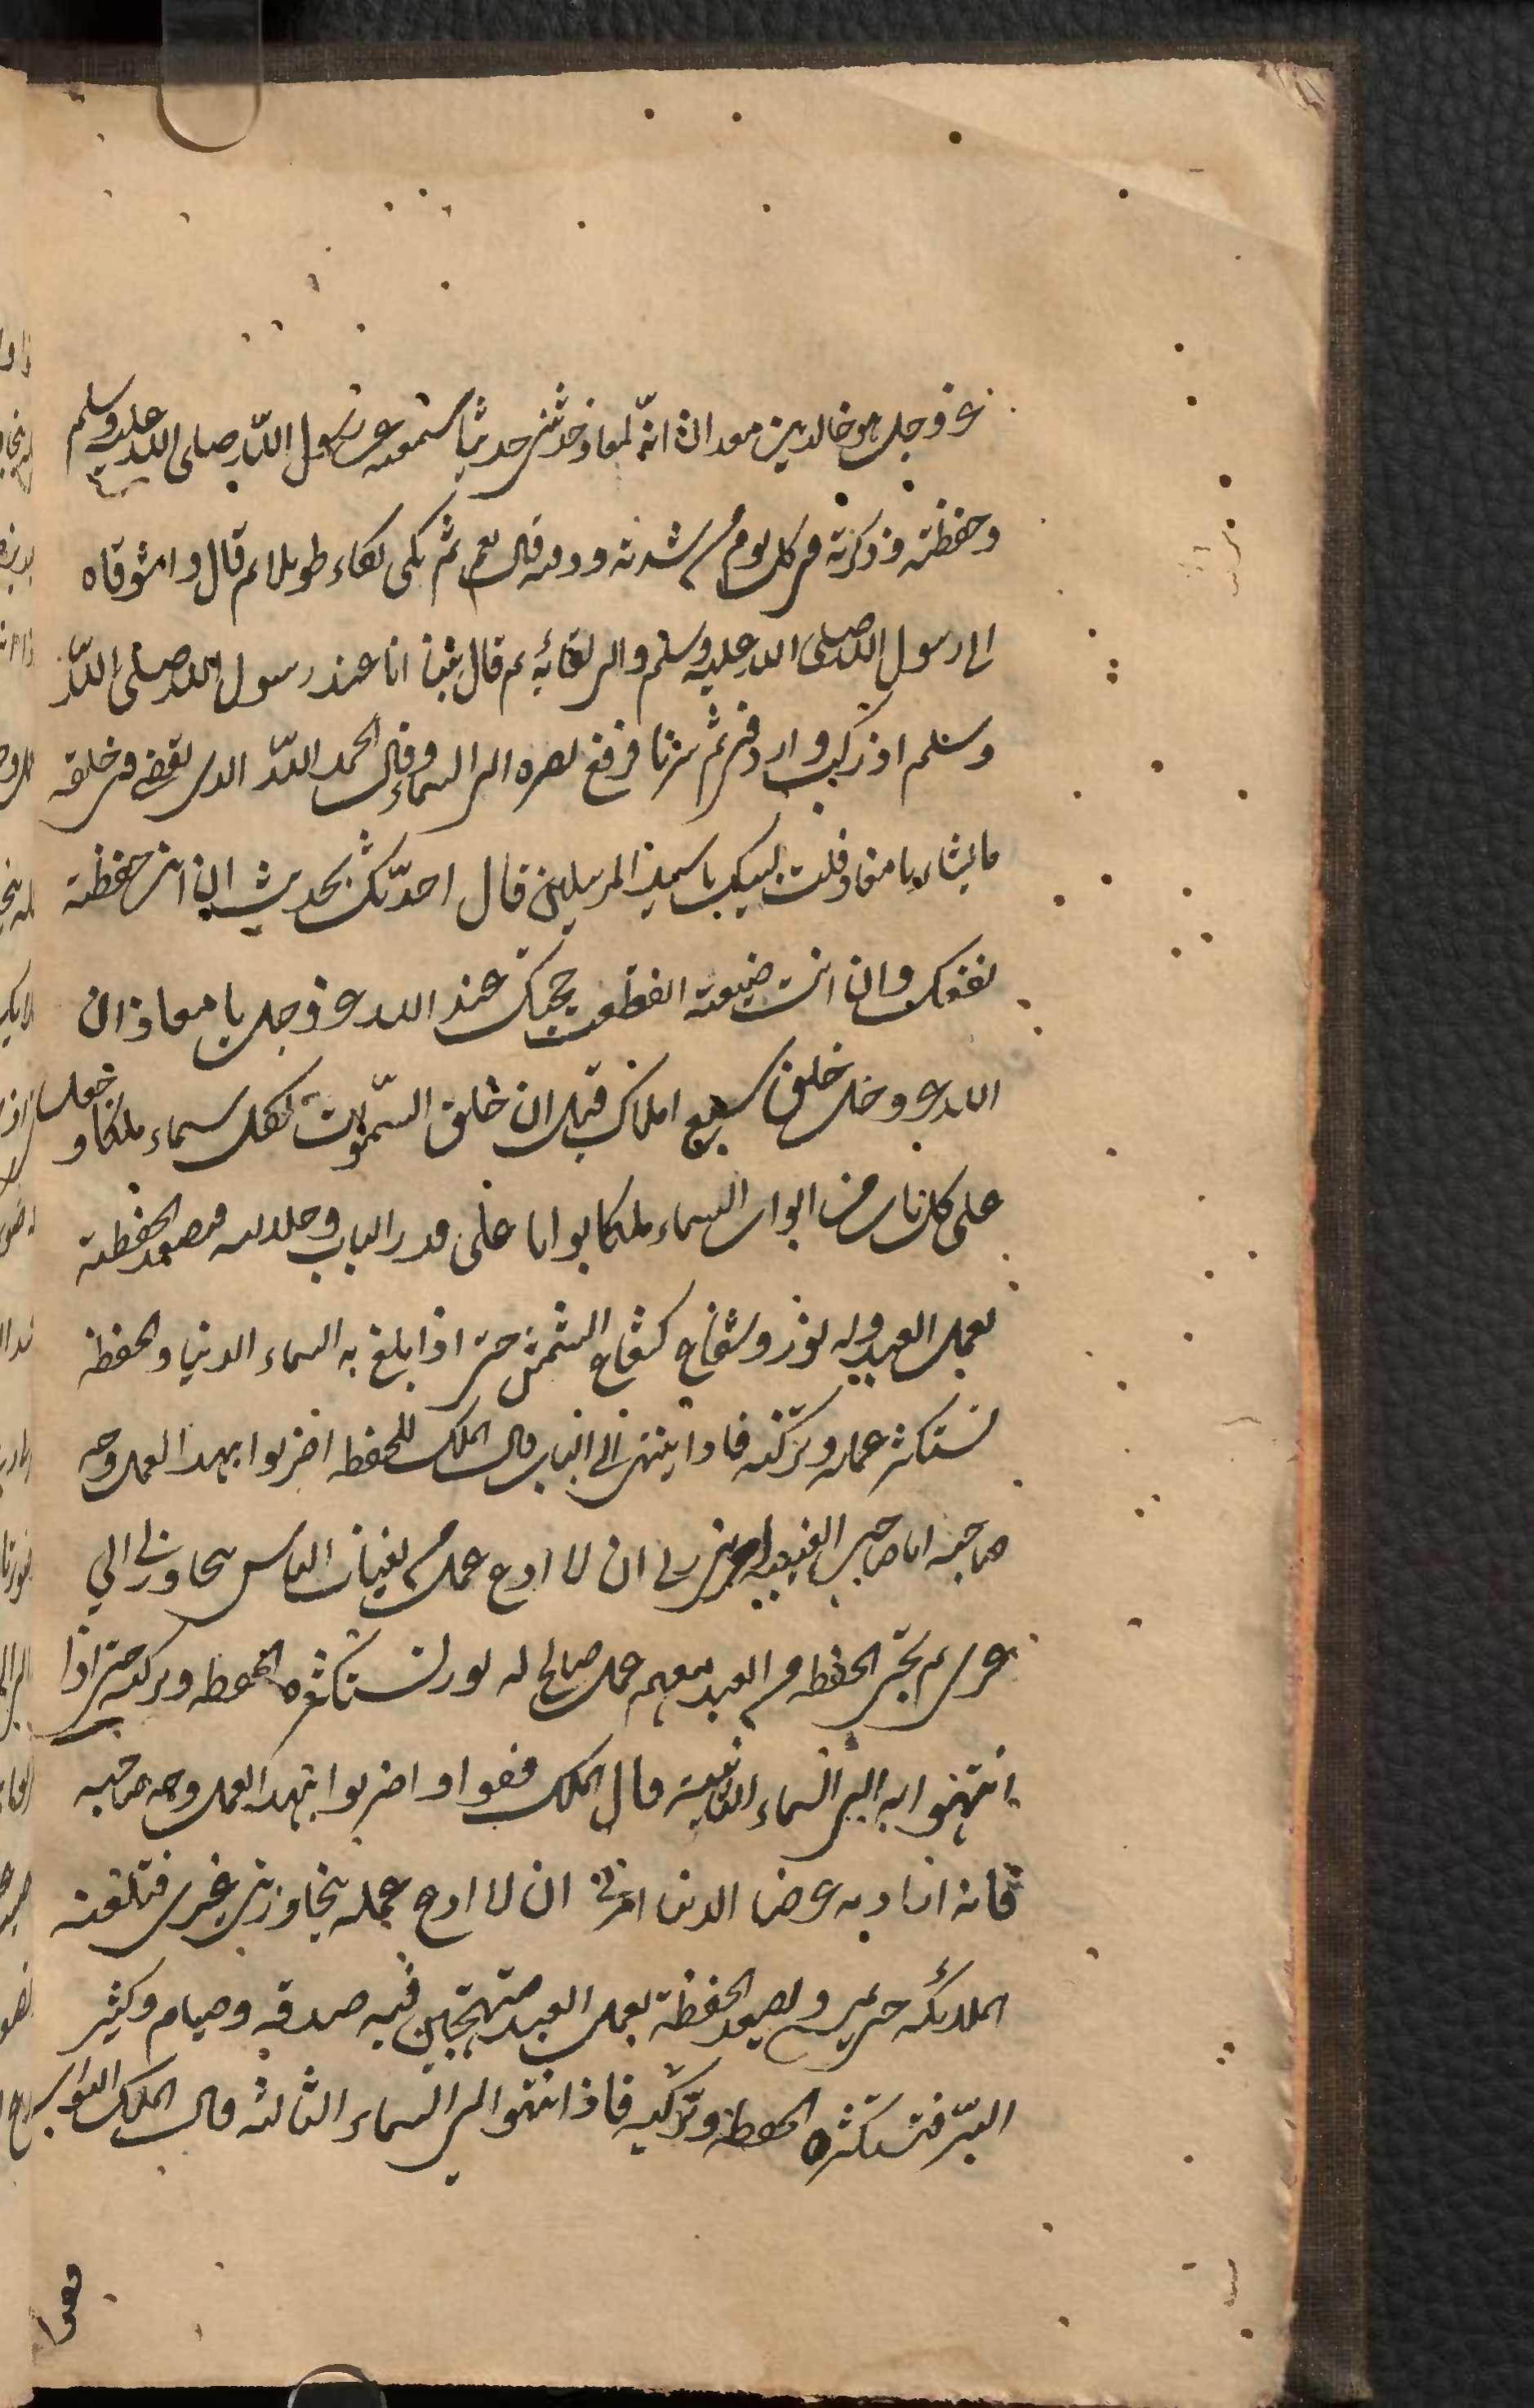 عز وجل هو خالد بن معدان انه لمعاذ حدثني حديثا سمعته عن رسول الله صلى الله عليه وسلم
وحفظته وذكرته في كل يوم من شدته ودقته قال نعم ثم بكى بكاء طويلا ثم قال واشوقاه
الى رسول الله صلى الله عليه وسلم والى لقائه ثم قال بينا انا عند رسول الله صلى الله
وسلم اذ ركب واردفني ثم سرنا فرفع بصره الى السماء وقال الحمد الله الذى يقضى فى خلقه
ما يشاء يا معاذ قلت لبيك يا سيد المرسلين قال احدثك بحديث ان انت حفظته
نفعك وان انت ضيعته انقطعت حجتك عند الله عز وجل يا معاذ ان
الله عز وجل خلق سبع املاك قبل ان خلق السموات لكل سماء ملكا وجعل
على كل باب من ابواب السماء ملكا بوابا على قدر الباب وجلالته فتصعد الحفظة
بعمل العبد وله نور وشعاع كشعاع الشمس حتى اذا بلغ به السماء الدنيا والحفظة
تستكثر عمله وتزكيه فاذا ينتهى الى الباب قال الملك للحفظه اضربوا بهذا العمل وجه
صاحبه انا صاحب الغيبه امرنى ربى ان لا ادع عمل من يغتاب الناس يتجاوزنى الي
غيرى ثم تجئ الحفظه من العبد معهم عمل صالح له نور تستكثره الحفظه وتزكيه حتى اذا
انتهوا به الى السماء الثانية قال الملك قفوا واضربوا بهذا العمل وجه صاحبه
فانه اراد به عرض الدنيا امرنى ان لا ادع عمله يتجاوزنى غيرى فتلعنه
الملائكه حتى يمسى وتصعد الحفظة بعمل العبد مبتهجين فيه صدقه وصيام وكثير
البر فتستكثره الحفظه وتزكيه فاذا انتهوا الى السماء الثالثه قال الملك البواب
قفوا